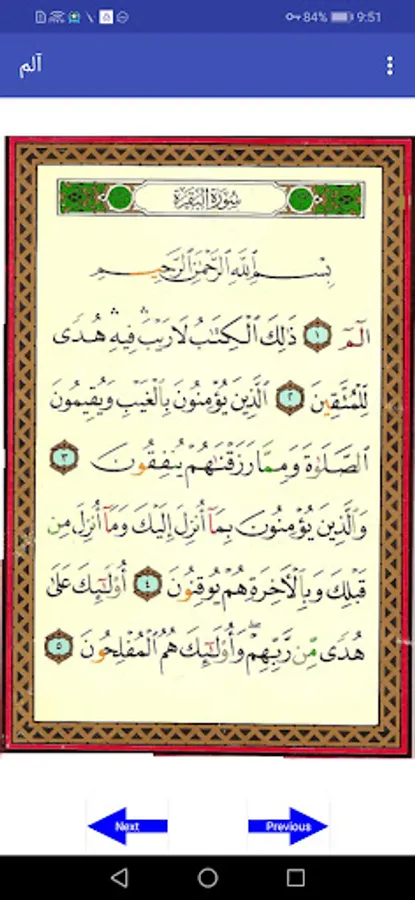 84% 9:51
آلم
سُورَةُ الْبَقَرَةِ
بِسْمِ اللَّهِ الرَّحْمَٰنِ الرَّحِيمِ
الٓمٓ ١ ذَٰلِكَ الْكِتَٰبُ لَا رَيْبَ ۛ فِيهِ ۛ هُدًى
لِّلْمُتَّقِينَ ٢ الَّذِينَ يُؤْمِنُونَ بِالْغَيْبِ وَيُقِيمُونَ
الصَّلَوٰةَ وَمِمَّا رَزَقْنَٰهُمْ يُنفِقُونَ ٣
وَالَّذِينَ يُؤْمِنُونَ بِمَآ أُنزِلَ إِلَيْكَ وَمَآ أُنزِلَ مِن
قَبْلِكَ وَبِالْأَخِرَةِ هُمْ يُوقِنُونَ ٤ أُوْلَٰٓئِكَ عَلَىٰ
هُدًى مِّن رَّبِّهِمْ ۖ وَأُوْلَٰٓئِكَ هُمُ الْمُفْلِحُونَ ٥
Next Previous